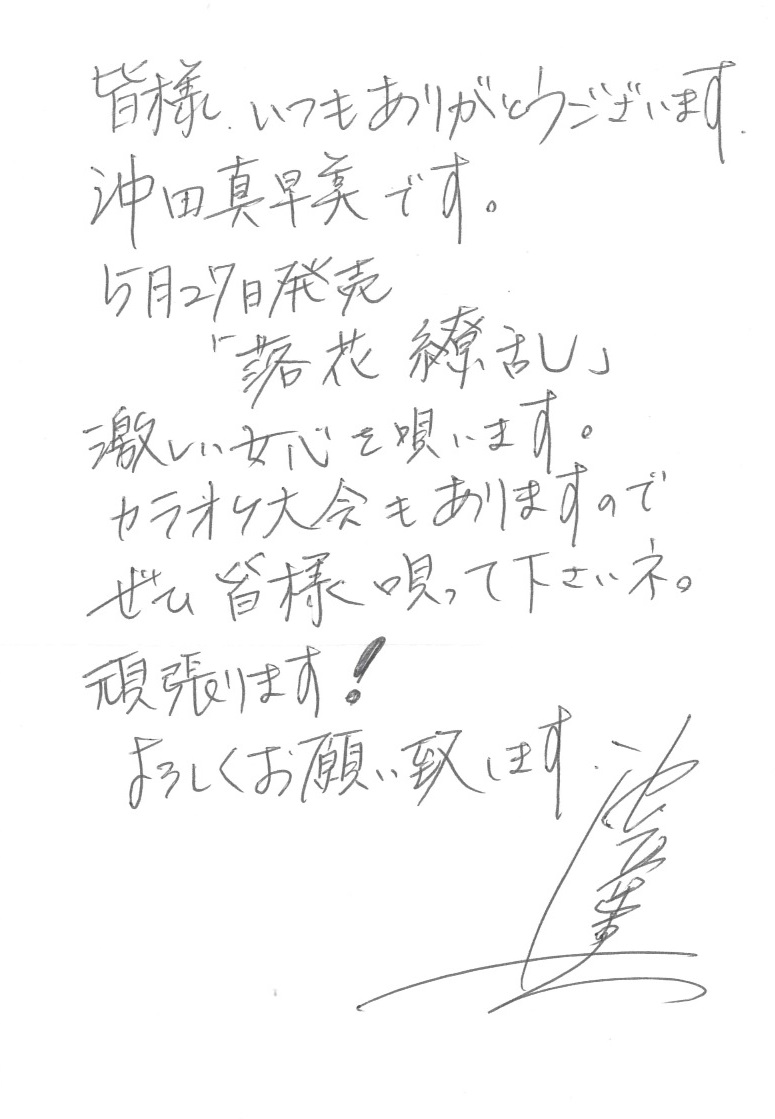 皆様、いつもありがとうございます.
沖田真早美です。
5月27日発売
「落花繚乱」
激しい女心を唄います。
カラオケ大会もありますので
ぜひ皆様唄って下さいネ。
頑張ります!
よろしくお願い致します.